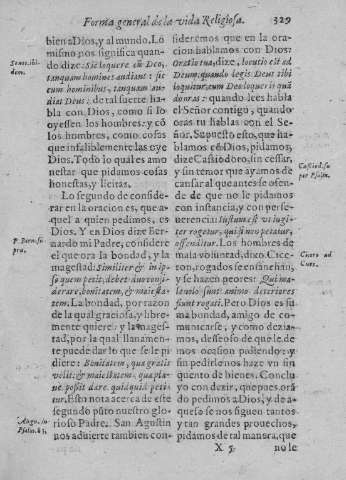 Forma general de la vida Religiosa. 329
bien a Dios, y al mundo. Lo
mismo nos significa quan-
do dize: Sic loquere cũ Deo,
tanquam homines audiant: sic
cum hominibus, tanquam au-
diat Deus: de tal suerte ha-
bla con Dios, como si lo
oyessen los hombres; y cõ
los hombres, como cosas
que infaliblemente las oye
Dios. Todo lo qual es amo
nestar que pidamos cosas
honestas, y licitas.
Lo segundo de conside-
rar en la oracion es, que a-
quel a quien pedimos, es
Dios. Y en Dios dize Ber-
nardo mi Padre, considere
el que ora la bondad, y la
magestad: Similiter & in ip-
so quem petit, debet duo consi-
derare, bonitatem, & maiesta-
tem. La bondad, por razon
de la qual graciosa, y libre-
mente quiere: y la mages-
tad, por la qual llanamen-
te puede dar lo que se le pi
diere: Bonitatem, qua gratis
velit: & maiestatem, qua pla-
ne possit dare quidquid peti-
tur. Esto nota acerca de este
segundo pũto nuestro glo-
rioso Padre. San Agustin
nos advierte tambien con-
Senec. ibi-
dem.
P. Bern. su
pra.
Aug. in
Psalm. 85.
sideremos que en la ora-
cion hablamos con Dios:
Oratio tua, dize, locutio est ad
Deum, quando legis Deus tibi
loquitur, cum Deo loqueris quã
do oras: quando lees habla
el Señor contigo, quando
oras tu hablas con el Se-
ñor. Supuesto esto, que ha-
blamos cõ Dios, pidamos,
dize Casiodoro, sin cessar,
y sin temor que ayamos de
cansar al que antes se ofen-
de de que no le pidamos
con instancia, y con perse-
uerencia: Iustum est vt iugi-
ter rogetur, qui si no petatur,
offenditur. Los hombres de
mala voluntad, dixo Cice-
ron, rogados se ensanchan,
y se hazen peores: Qui ma-
leuolo sunt animo deteriores
sunt rogati. Pero Dios es su
ma bondad, amigo de co-
municarse, y como dezia-
mos, desseoso de que le de-
mos ocasion pidiendo: y
sin pedirlenos haze vn sin
quento de bienes. Conclu
yo con dezir, que pues orã
do pedimos a Dios, y de a-
questo se nos siguen tantos
y tan grandes prouechos,
pidamos de tal manera, que
Casiod. su
per Psalm.
Cicero ad
X 5 no le